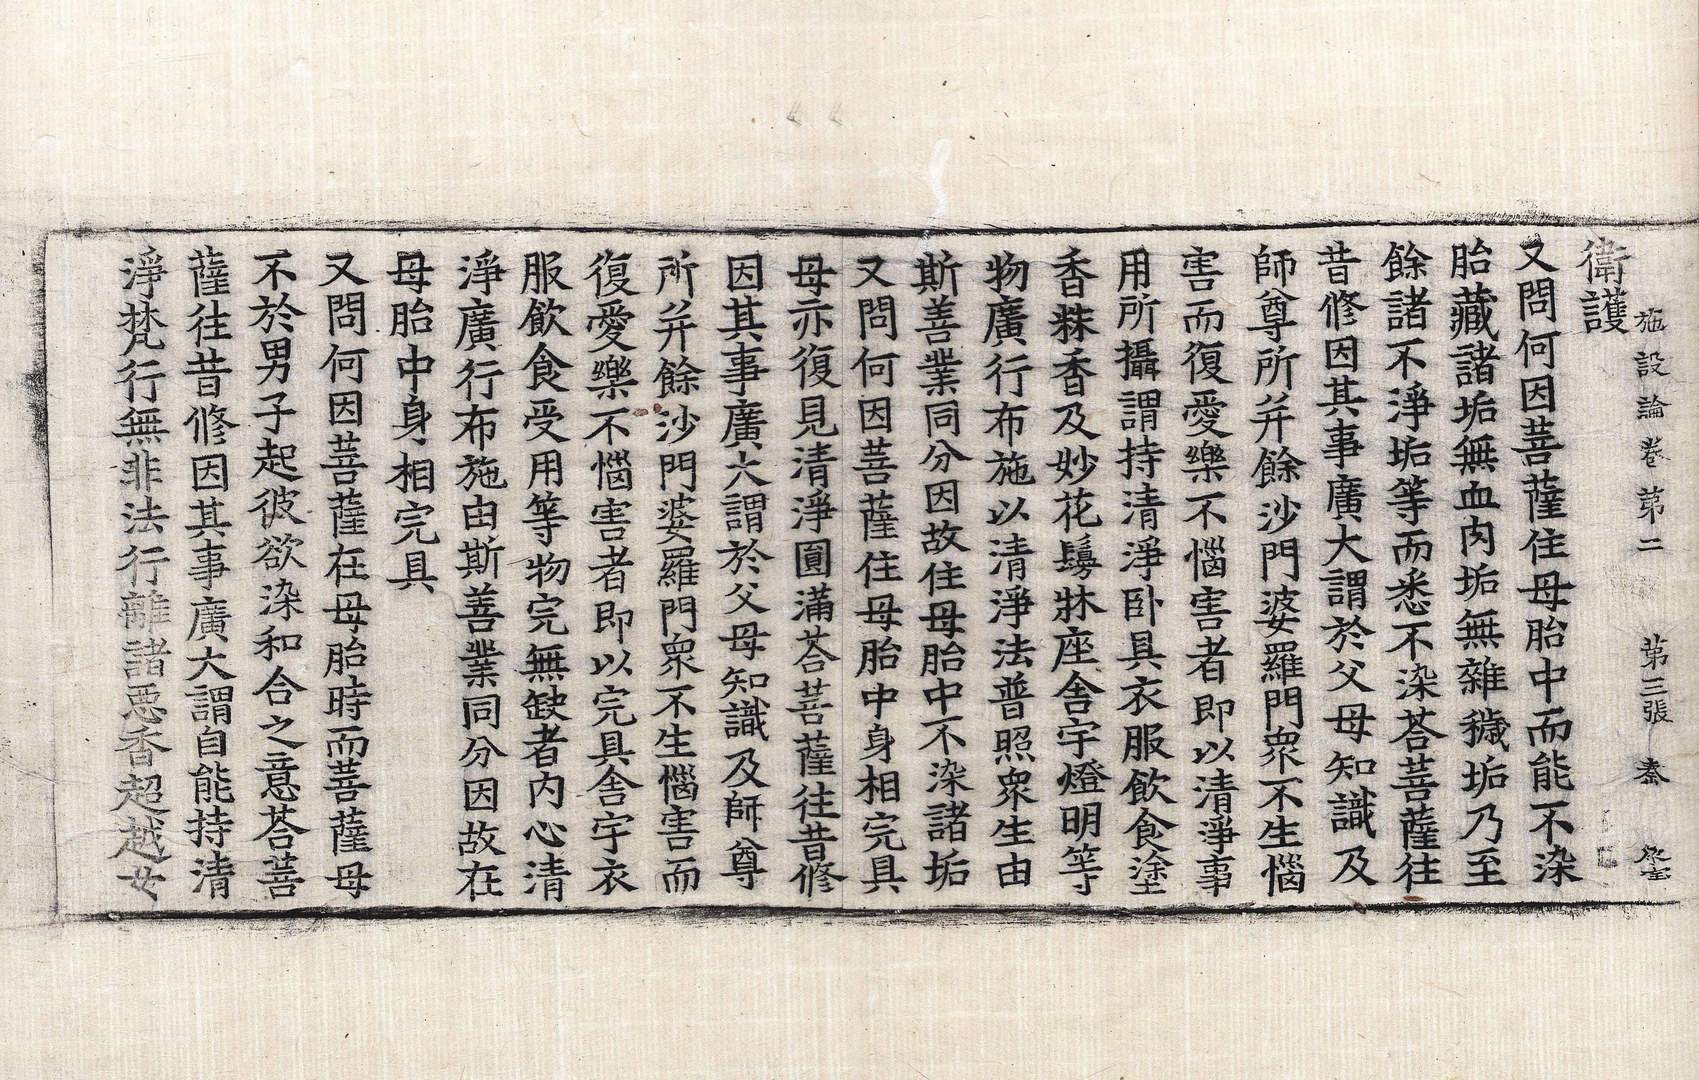 施設論卷第二 第三張 秦
衛護
又問何因菩薩住母胎中而能不染
胎藏諸垢無血肉垢無雜穢垢乃至
餘諸不淨垢等而悉不染荅菩薩往
昔修因其事廣大謂於父母知識及
師尊所并餘沙門婆羅門衆不生惱
害而復愛樂不惱害者即以清淨事
用所攝謂持清淨卧具衣服飲食塗
香粖香及妙花鬘牀座舍宇燈明等
物廣行布施以清淨法普照衆生由
斯善業同分因故住母胎中不染諸垢
又問何因菩薩住母胎中身相完具
母亦復見清淨圓滿荅菩薩往昔修
因其事廣大謂於父母知識及師尊
所并餘沙門婆羅門衆不生惱害而
復愛樂不惱害者即以完具舍宇衣
服飲食受用等物完無缺者內心清
淨廣行布施由斯善業同分因故在
母胎中身相完具
又問何因菩薩在母胎時而菩薩母
不於男子起彼欲染和合之意荅菩
薩往昔修因其事廣大謂自能持清
淨梵行無非法行離諸惡香超越女